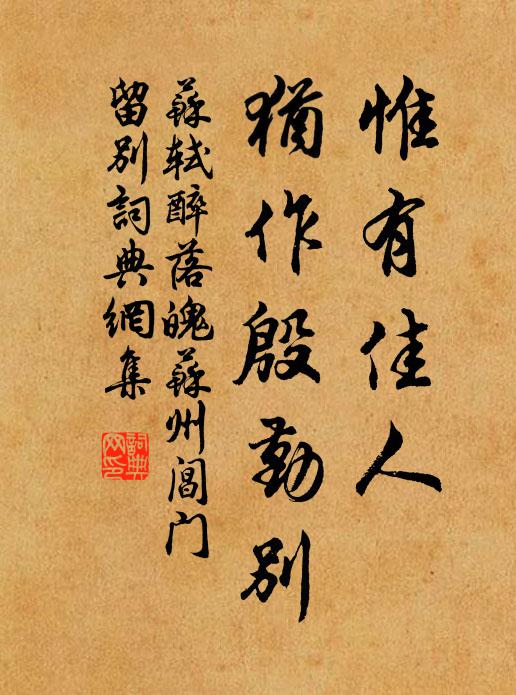 惟有佳人
猶作殷勤別
蘇軾醉落魄蘇州閶门
留別詞典網集
詞典
网印